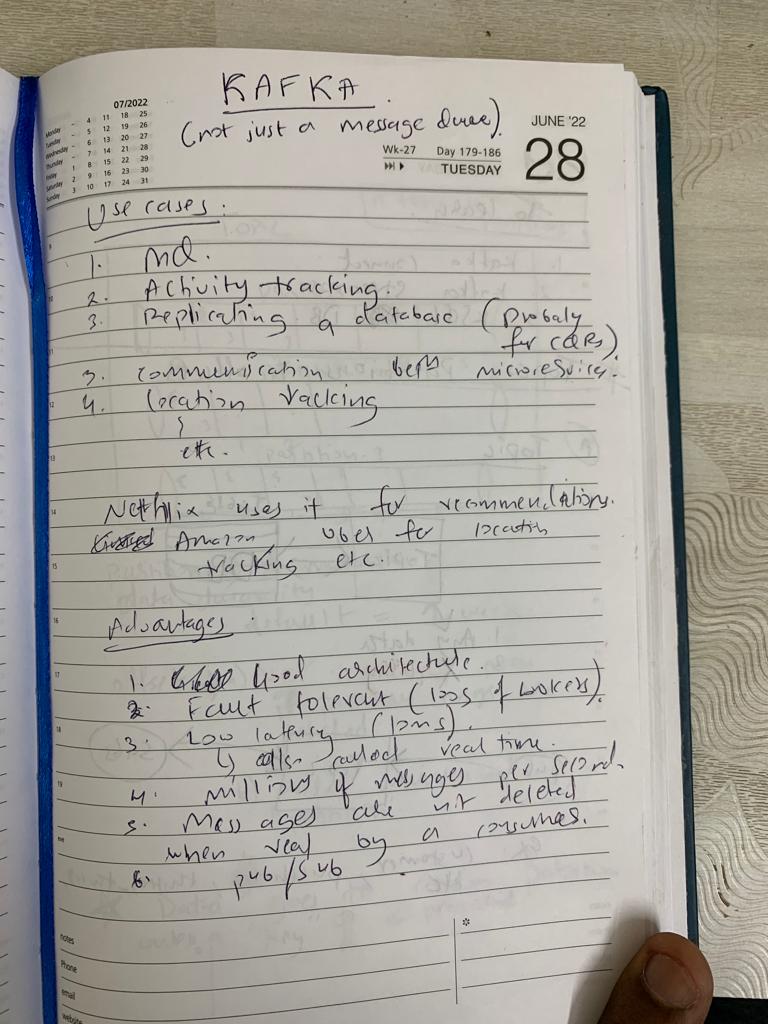 KAFKA
(not just a message queue).
07/2022
Monday - 4 11 18 25
Tuesday - 5 12 19 26
Wednesday - 6 13 20 27
Thursday - 7 14 21 28
Friday 1 8 15 22 29
Saturday 2 9 16 23 30
Sunday 3 10 17 24 31
JUNE '22
Wk-27 Day 179-186
28
TUESDAY
Use cases :
1. MQ.
2. Activity tracking.
3. Replicating a database (Probaly
for CQRS).
3. communication betn microservices.
4. location tracking
etc.
Netflix uses it for recommendations.
Amazon, uber for location
tracking etc.
Advantages :
1. Good architecture.
2. Fault tolerant (100s of brokers).
3. Low latency (10ms).
↳ also called real time.
4. millions of messages per second.
5. Messages are not deleted
when read by a consumer.
6. pub/sub
notes
Phone
email
website
*